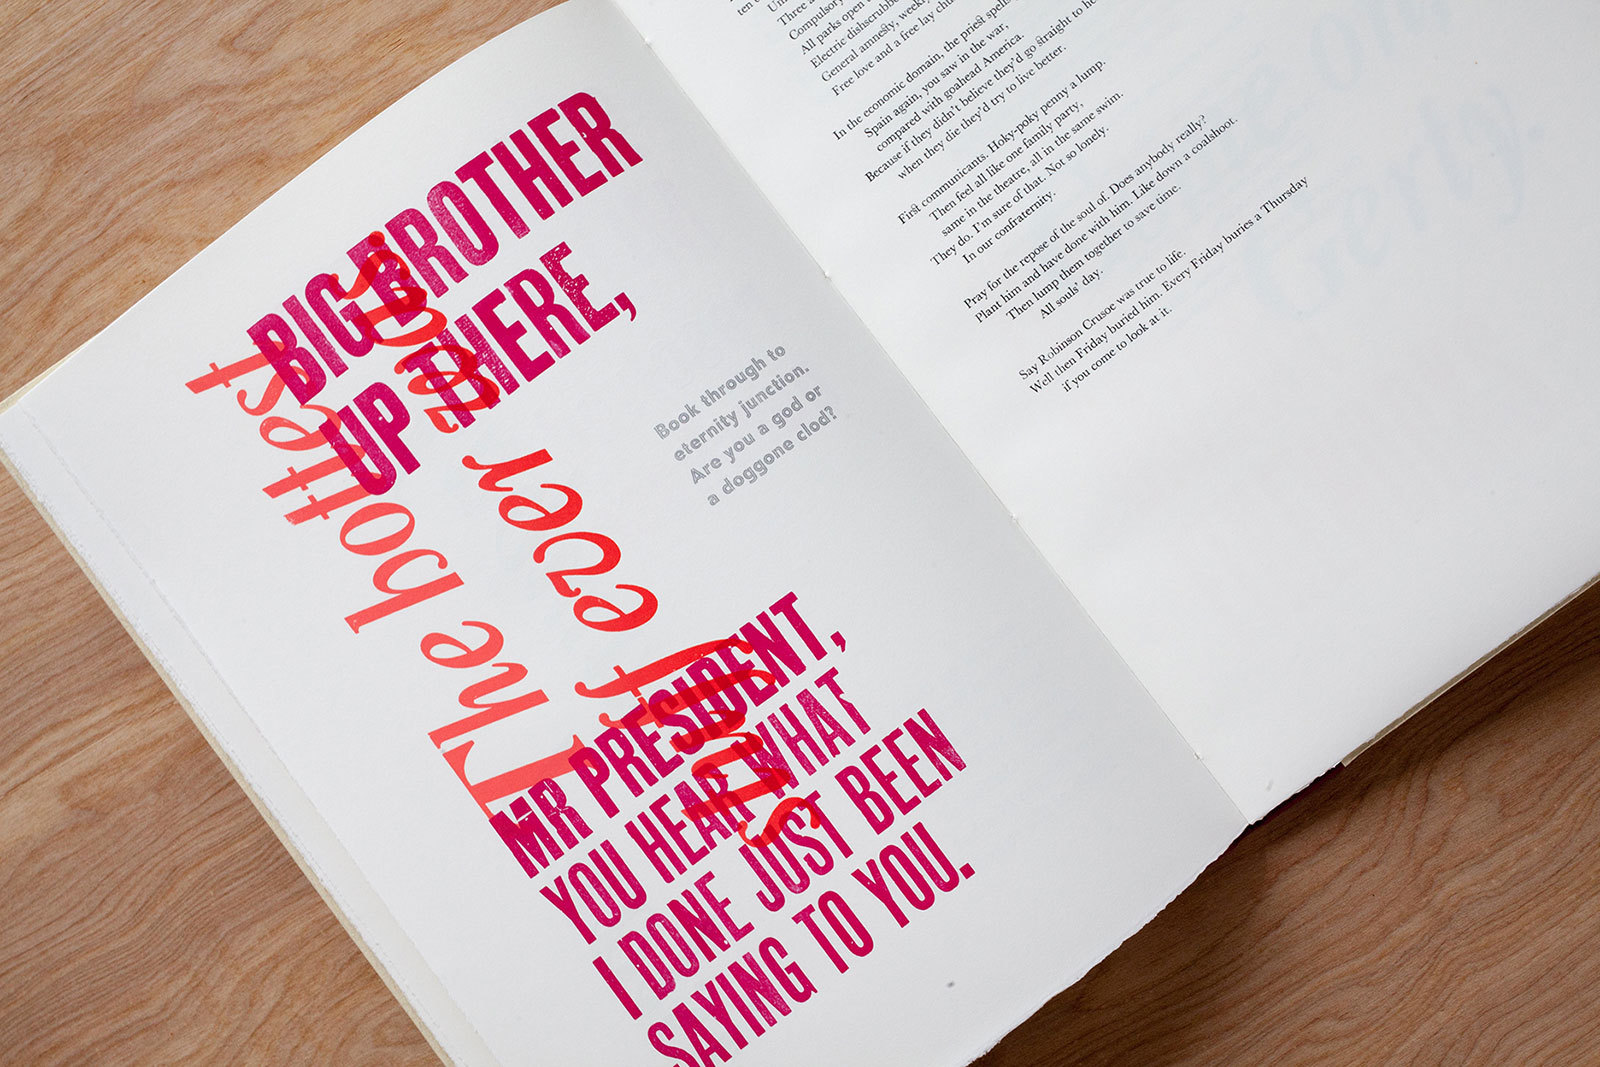 BIG BROTHER
UP THERE,
The hottest
stuff ever was
Book through to
eternity junction.
Are you a god or
a doggone clod?
MR PRESIDENT,
YOU HEAR WHAT
I DONE JUST BEEN
SAYING TO YOU.
ten
Three
Compulsory
All parks open
Electric
General amnesty,
Free love and a free lay
In the economic domain, the priest spells
Spain again, you saw in the war,
compared with goahead America.
Because if they didn't believe they'd go straight to
when they die they'd try to live better.
First communicants. Hoky-poky penny a lump.
Then feel all like one family party,
same in the theatre, all in the same swim.
They do. I'm sure of that. Not so lonely.
In our confraternity.
Pray for the repose of the soul of. Does anybody really?
Plant him and have done with him. Like down a coalshoot.
Then lump them together to save time.
All souls' day.
Say Robinson Crusoe was true to life.
Well then Friday buried him. Every Friday buries a Thursday
if you come to look at it.